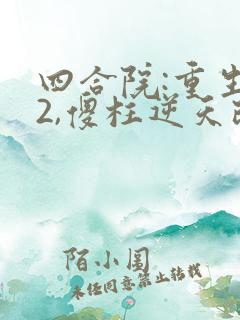 四合院:重生
2,傻柱逆天改
陌小闺
未经同意禁止转载